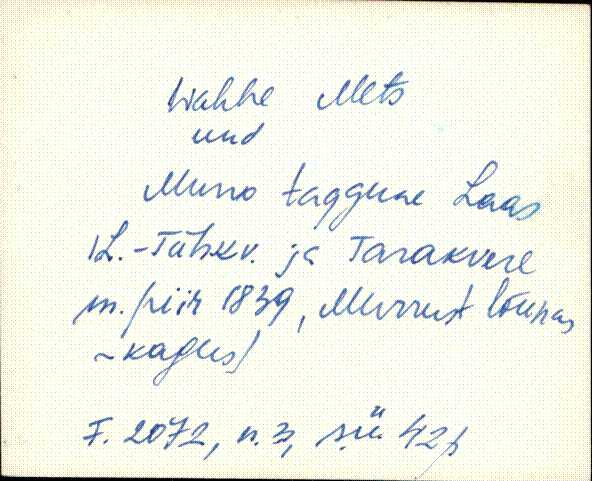 Wahhe Mets
und
Murro taggune Laas
/L.-Tähkv. ja Tarakvere
m. piir 1839, Murrust lõunas
~kagus/
F. 2072, n. 3, s.ü. 42p